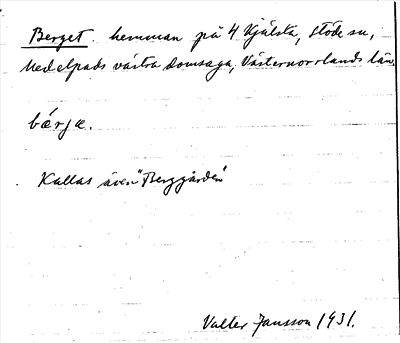 Berget hemman på 4 Kjälsta, Stöde sn,
Medelpads västra domsaga, Västernorrlands län.
bärje.
Kallas även "Berggården"
Valter Jansson 1931.